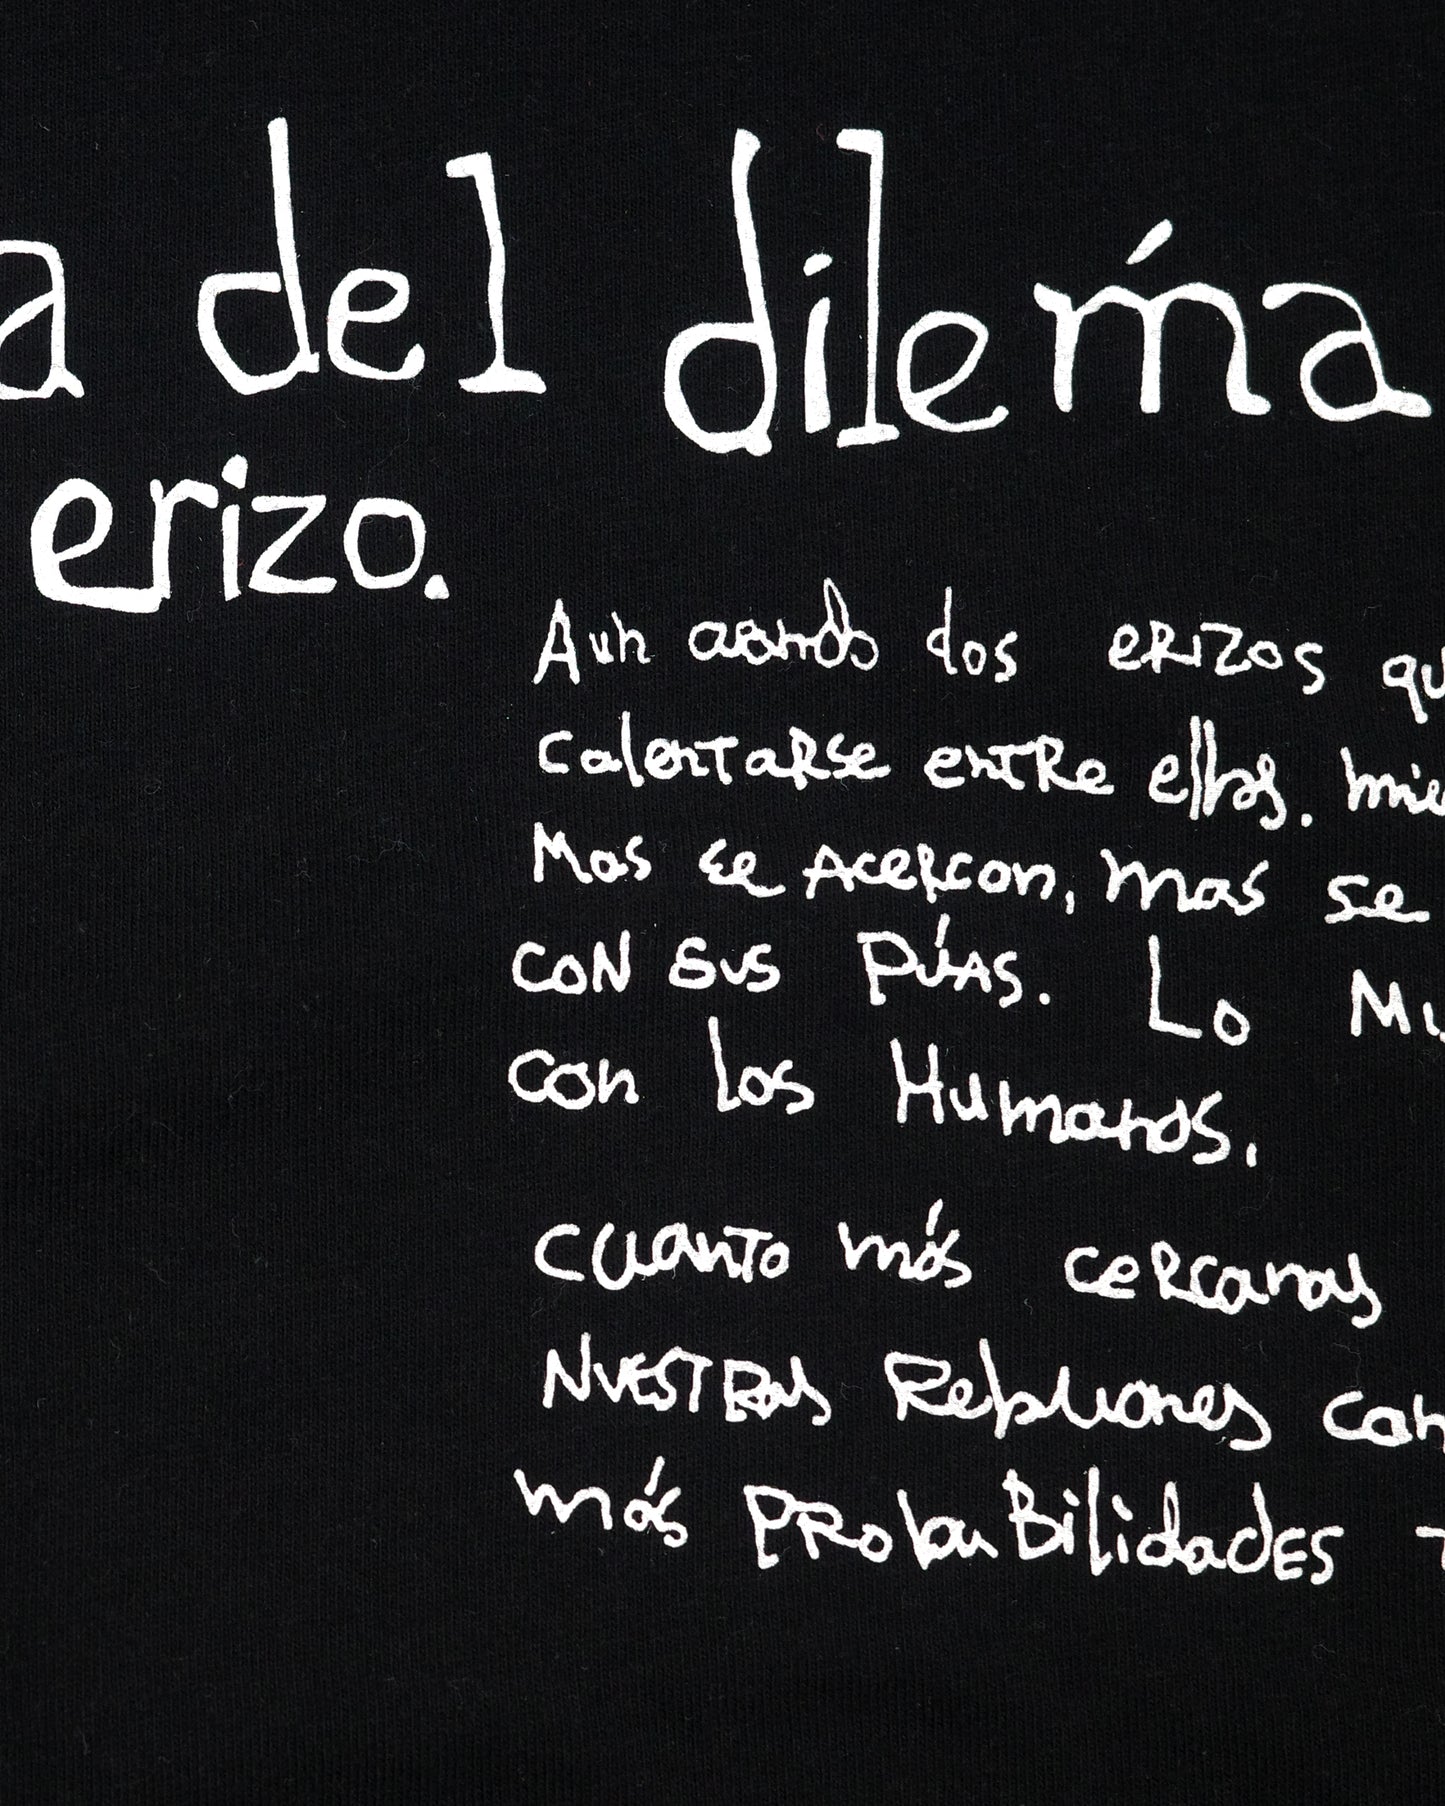 a del dileḿa
erizo.
Aun cuando dos eRizos qu
calentaRse entRe ellos. mie
Mas se aceRcan, mas se
CON SUS PÚAS. Lo Mis
con los Humanos,
CUANTO más ceRcanas
NUESTRAS Relaciones con
más PRobaBilidadES T